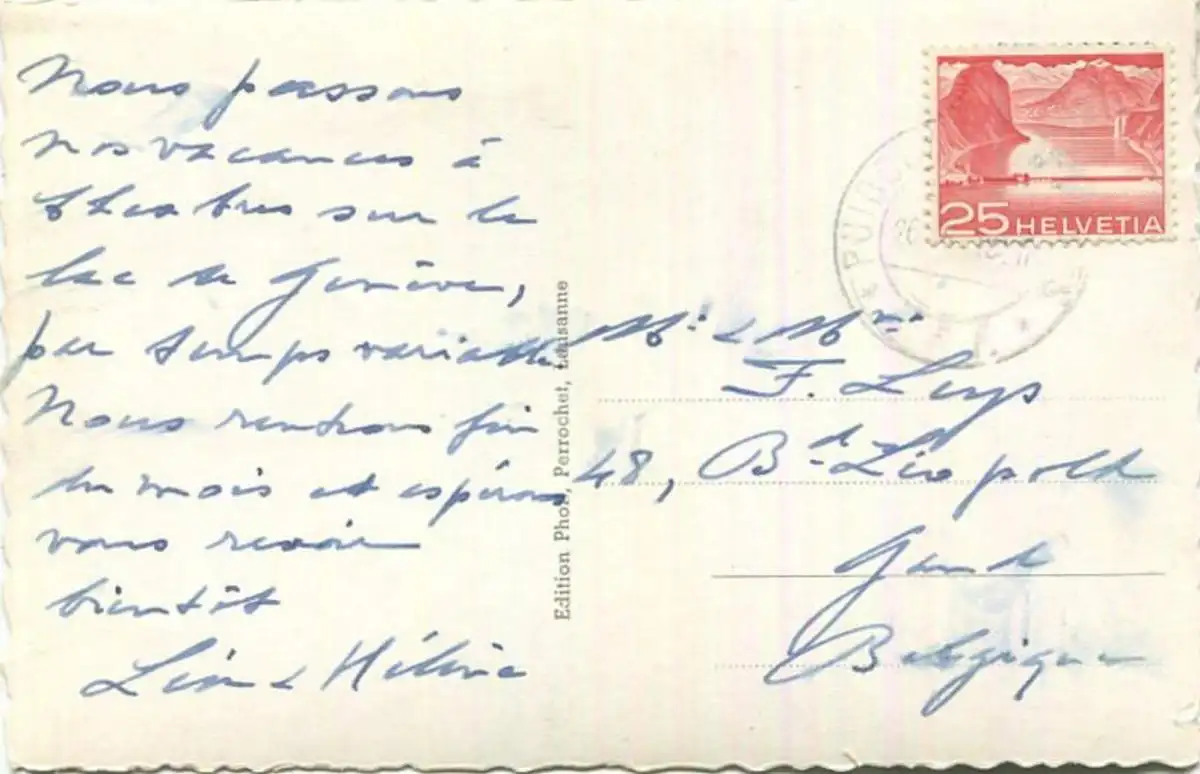 Nous passons
nos vacances à
Chexbres sur le
lac de Genève,
par temps variable.
Nous rentrons fin
du mois et espérons
vous revoir
bientôt
Léon & Hélène
Edition Phot., Perrochet, Lausanne
25 HELVETIA
Mr & Mme
F. Luys
48, Bd Léopold
Gand
Belgique